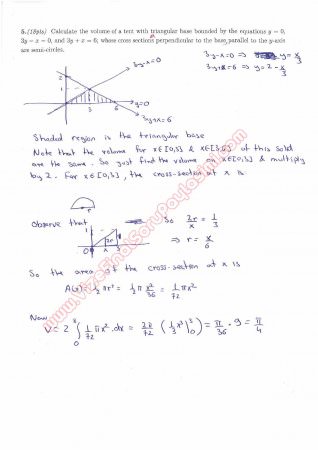 5.(18pts) Calculate the volume of a tent with triangular base bounded by the equations y = 0,
3y − x = 0, and 3y + x = 6; whose cross sections perpendicular to the base parallel to the y-axis
are semi-circles.
3y-x=0 => y = x/3
3y+x=6 => y = 2 - x/3
3y-x=0
2
1
3
6
y=0
3y+x=6
Shaded region is the triangular base
Note that the volume for x∈[0,3] & x∈[3,6] of this solid
are the same. So just find the volume on x∈[0,3] & multiply
by 2. For x∈[0,3], the cross-section at x is
r
Observe that
1
2r
0
x
3
So 2r/x = 1/3
=> r = x/6
So the area of the cross-section at x is
A(x) = 1/2 πr² = 1/2 π x²/36 = 1/72 πx²
Now
V = 2 ∫₀³ 1/72 πx² dx = 2π/72 (1/3 x³ |₀³) = π/36 · 9 = π/4
www.VizeFinalSoruPaylasimi.com